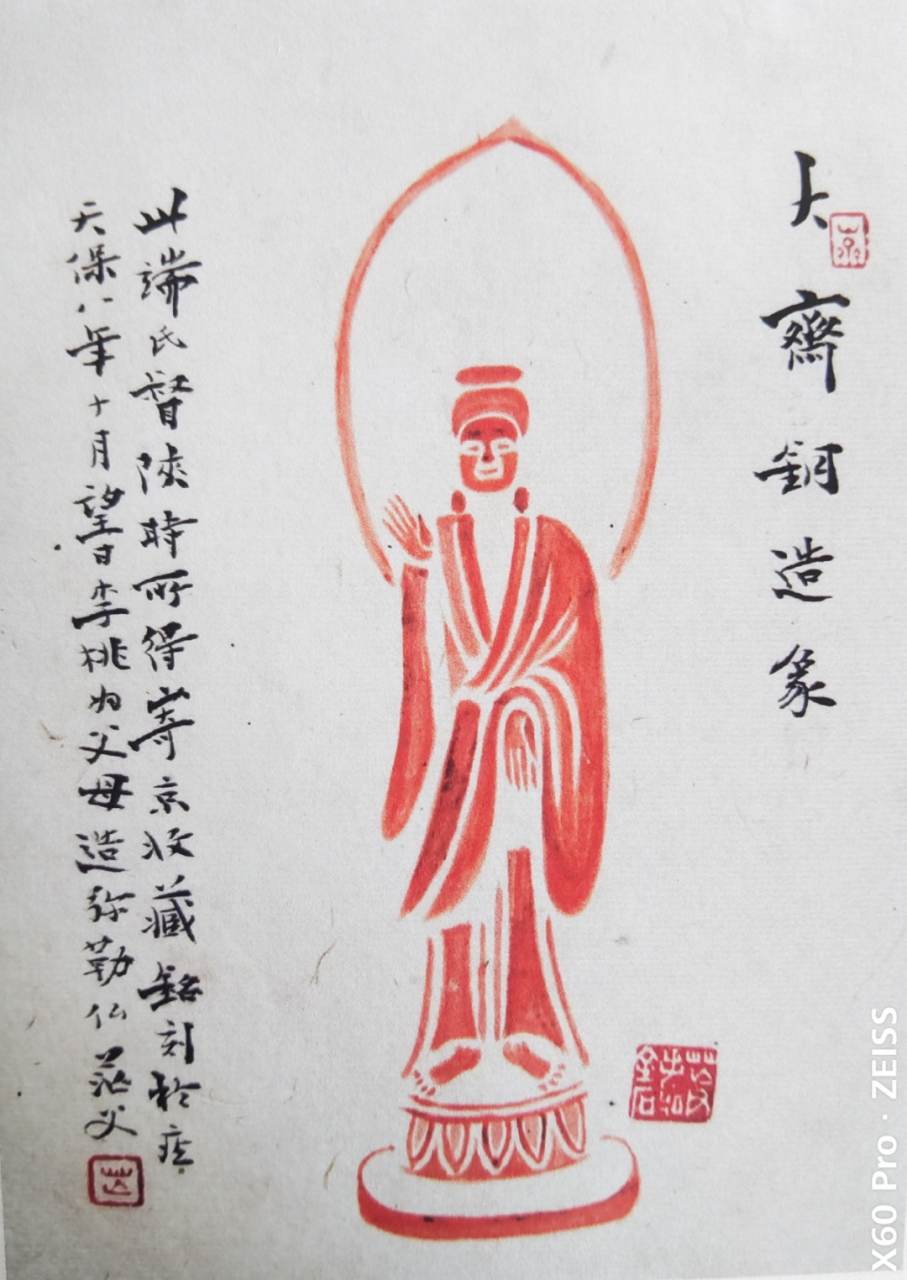 大齊銅造象
此端氏督陝時所得寄京收藏銘刻於座
天保八年十月望日李桃为父母造弥勒仏 茫父
茫
X60 Pro · ZEISS